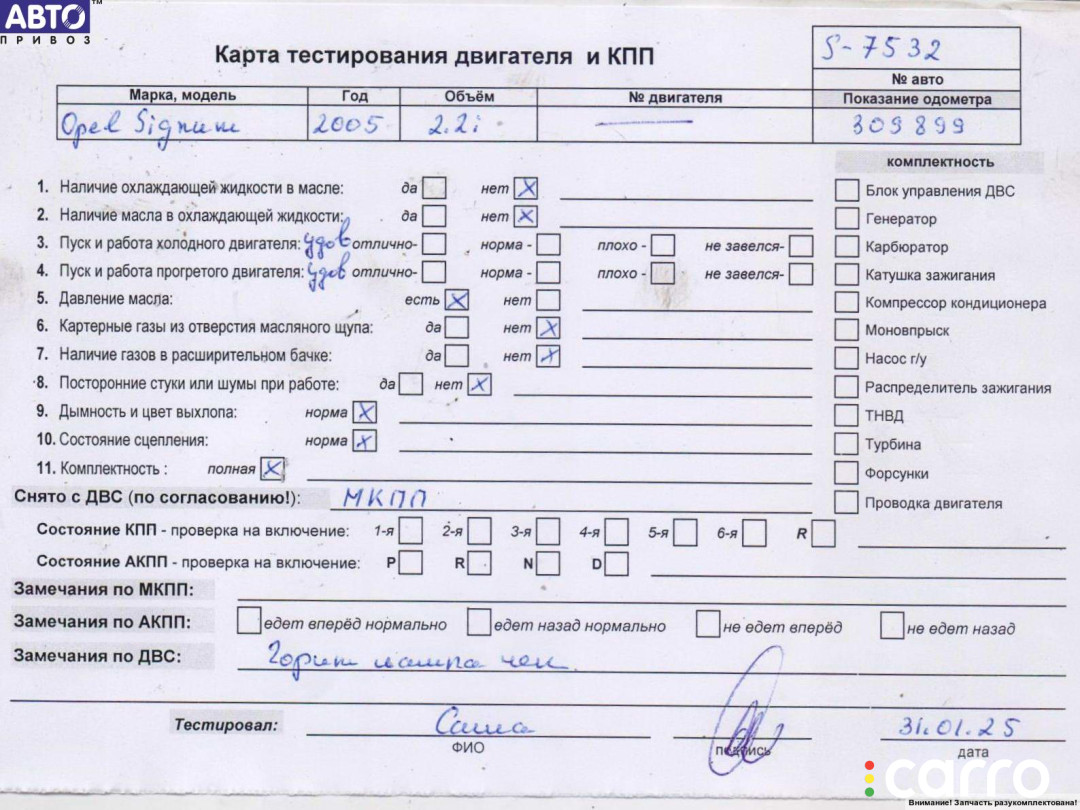 АВТО™
ПРИВОЗ
Карта тестирования двигателя и КПП
S-7532
№ авто
Марка, модель Год Объём № двигателя Показание одометра
Opel Signum 2005 2.2i 309899
комплектность
1. Наличие охлаждающей жидкости в масле: да нет X Блок управления ДВС
2. Наличие масла в охлаждающей жидкости: да нет X Генератор
3. Пуск и работа холодного двигателя: удов отлично- норма - плохо - не завелся- Карбюратор
4. Пуск и работа прогретого двигателя: удов отлично- норма - плохо - не завелся- Катушка зажигания
5. Давление масла: есть X нет Компрессор кондиционера
6. Картерные газы из отверстия масляного щупа: да нет X Моновпрыск
7. Наличие газов в расширительном бачке: да нет X Насос г/у
8. Посторонние стуки или шумы при работе: да нет X Распределитель зажигания
9. Дымность и цвет выхлопа: норма X ТНВД
10. Состояние сцепления: норма X Турбина
11. Комплектность : полная X Форсунки
Снято с ДВС (по согласованию!): МКПП Проводка двигателя
Состояние КПП - проверка на включение: 1-я 2-я 3-я 4-я 5-я 6-я R
Состояние АКПП - проверка на включение: P R N D
Замечания по МКПП:
Замечания по АКПП: едет вперёд нормально едет назад нормально не едет вперёд не едет назад
Замечания по ДВС: Горит лампа чек
Тестировал: Саша 31.01.25
ФИО подпись дата
carro
Внимание! Запчасть разукомплектована!